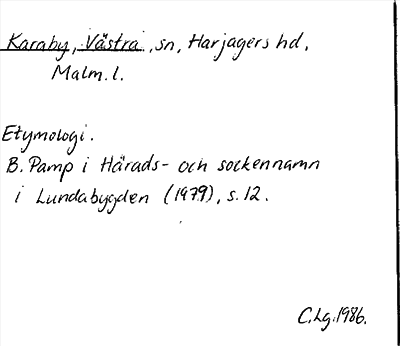 Karaby, Västra, sn, Harjagers hd,
Malm. l.
Etymologi.
B. Pamp i Härads- och sockennamn
i Lundabygden (1979), s. 12.
C.Lg. 1986.